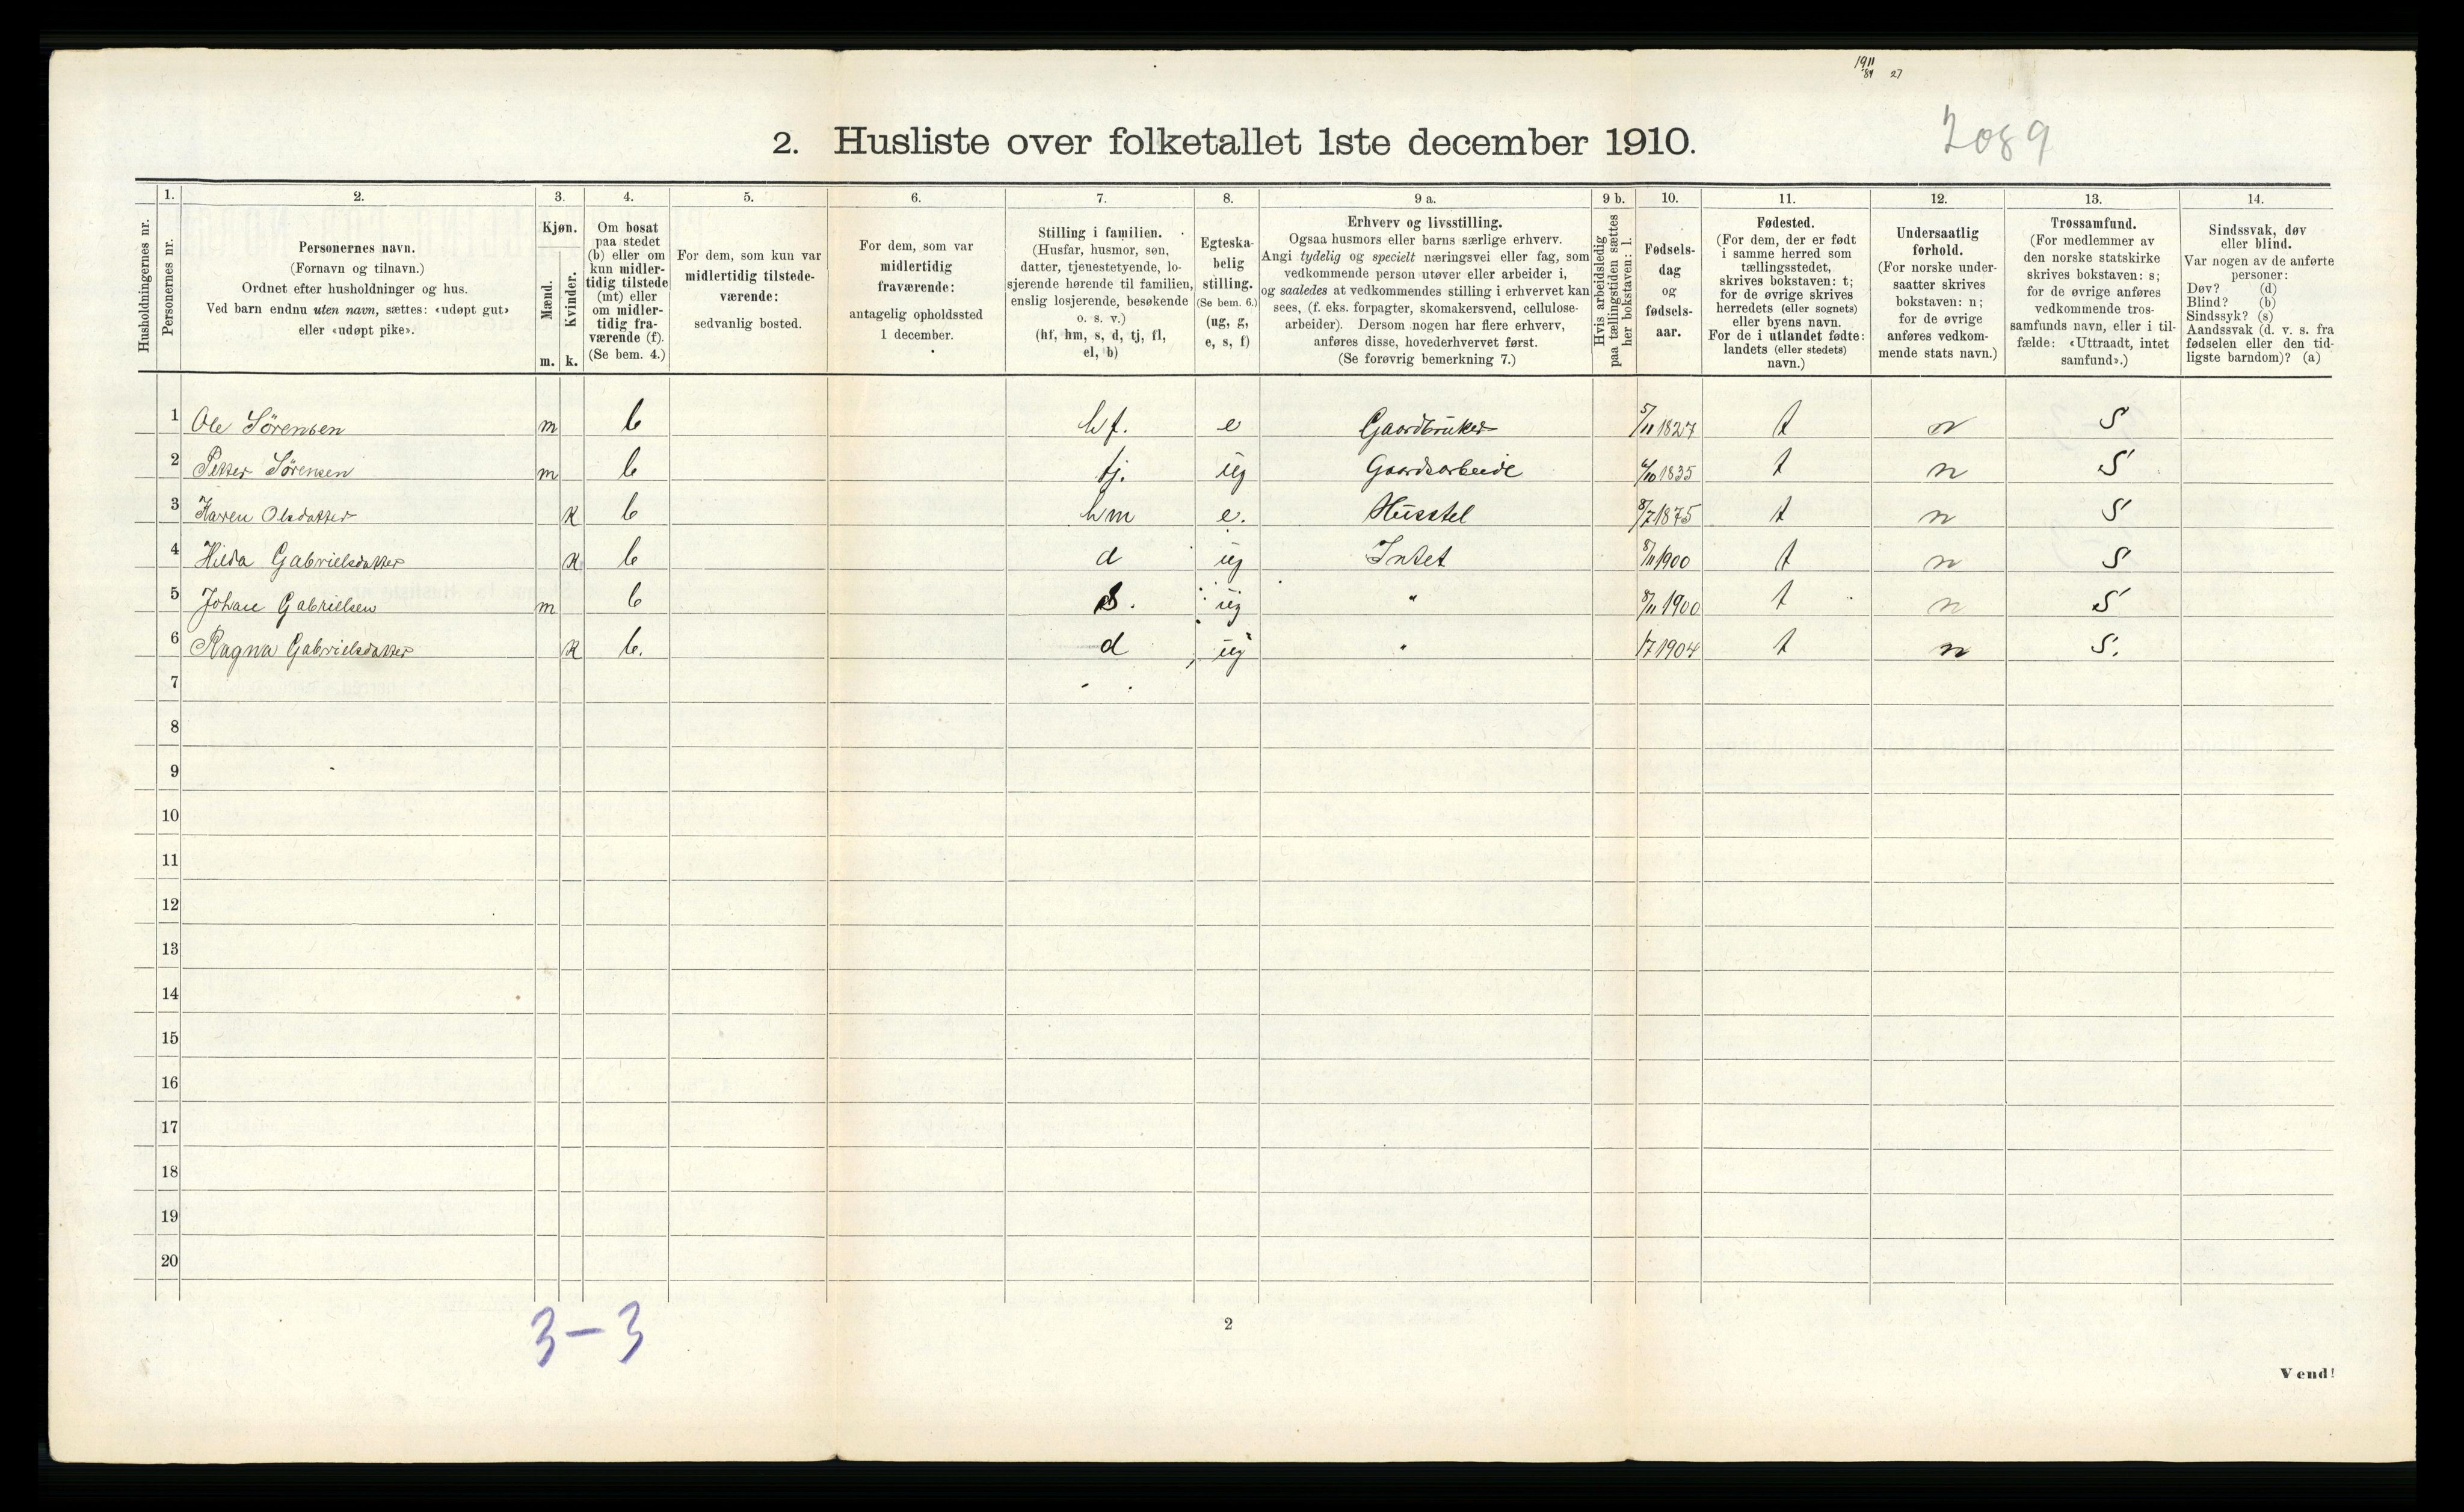 1911
84 27
2. Husliste over folketallet 1ste december 1910.
2089
Husholdningernes nr.
1.
Personernes nr.
2.
Personernes navn.
(Fornavn og tilnavn.)
Ordnet efter husholdninger og hus.
Ved barn endnu uten navn, sættes: «udøpt gut»
eller «udøpt pike».
3.
Kjøn.
Mænd.
Kvinder.
m. k.
4.
Om bosat
paa stedet
(b) eller om
kun midler-
tidig tilstede
(mt) eller
om midler-
tidig fra-
værende (f).
(Se bem. 4.)
5.
For dem, som kun var
midlertidig tilstede-
værende:
sedvanlig bosted.
6.
For dem, som var
midlertidig
fraværende:
antagelig opholdssted
1 december.
7.
Stilling i familien.
(Husfar, husmor, søn,
datter, tjenestetyende, lo-
sjerende hørende til familien,
enslig losjerende, besøkende
o. s. v.)
(hf, hm, s, d, tj, fl,
el, b)
8.
Egteska-
belig
stilling.
(Se bem. 6.)
(ug, g,
e, s, f)
9 a.
Erhverv og livsstilling.
Ogsaa husmors eller barns særlige erhverv.
Angi tydelig og specielt næringsvei eller fag, som
vedkommende person utøver eller arbeider i,
og saaledes at vedkommendes stilling i erhvervet kan
sees, (f. eks. forpagter, skomakersvend, cellulose-
arbeider). Dersom nogen har flere erhverv,
anføres disse, hovederhvervet først.
(Se forøvrig bemerkning 7.)
9 b.
Hvis arbeidsledig
paa tællingstiden sættes
her bokstaven: l.
10.
Fødsels-
dag
og
fødsels-
aar.
11.
Fødested.
(For dem, der er født
i samme herred som
tællingsstedet,
skrives bokstaven: t;
for de øvrige skrives
herredets (eller sognets)
eller byens navn.
For de i utlandet fødte:
landets (eller stedets)
navn.)
12.
Undersaatlig
forhold.
(For norske under-
saatter skrives
bokstaven: n;
for de øvrige
anføres vedkom-
mende stats navn.)
13.
Trossamfund.
(For medlemmer av
den norske statskirke
skrives bokstaven: s;
for de øvrige anføres
vedkommende tros-
samfunds navn, eller i til-
fælde: «Uttraadt, intet
samfund».)
14.
Sindssvak, døv
eller blind.
Var nogen av de anførte
personer:
Døv? (d)
Blind? (b)
Sindssyk? (s)
Aandssvak (d. v. s. fra
fødselen eller den tid-
ligste barndom)? (a)
1 Ole Sörensen m b hf. e Gaardbruker 5/11 1827 t n S
2 Petter Sörensen m b tj. ug Gaardsarbeide 6/10 1835 t n S
3 Karen Olsdatter k b hm e. Husstel 8/7 1875 t n S
4 Hilda Gabrielsdatter k b d ug Intet 8/11 1900 t n S
5 Johan Gabrielsen m b S. ug " 8/11 1900 t n S
6 Ragna Gabrielsdatter k b. d ug " 1/7 1904 t n S.
7
8
9
10
11
12
13
14
15
16
17
18
19
20
3-3
2
Vend!